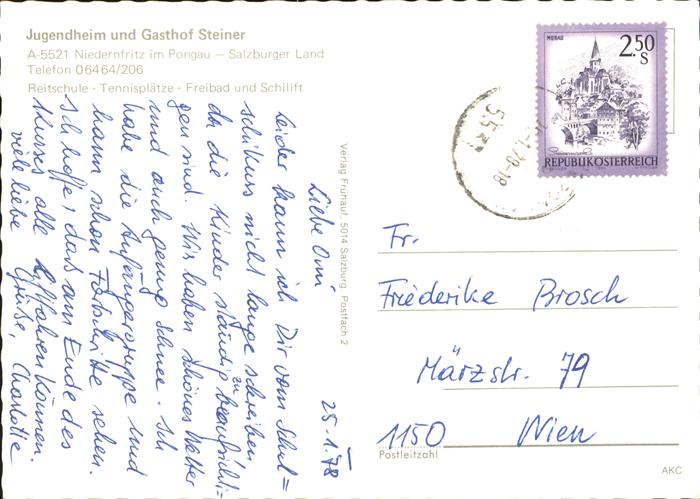 Jugendheim und Gasthof Steiner
A-5521 Niedernfritz im Pongau – Salzburger Land
Telefon 06464/206
Reitschule · Tennisplätze · Freibad und Schilift
MURAU
2.50
S
REPUBLIK ÖSTERREICH
25.1.78
Liebe Omi
leider kann ich Dir vom Schul=
schikurs nicht lange schreiben
da die Kinder ständig zu beaufsichti=
gen sind. Wir haben schönes Wetter
und auch genug Schnee. Ich
habe die Anfängergruppe und
kann schon Fortschritte sehen.
Ich hoffe, daß am Ende des
Kurses alle fahren können.
viele liebe Grüße, Charlotte
Verlag Frühauf, 5014 Salzburg, Postfach 2
Fr.
Friederike Brosch
Märzstr. 79
1150 Wien
Postleitzahl
AKC